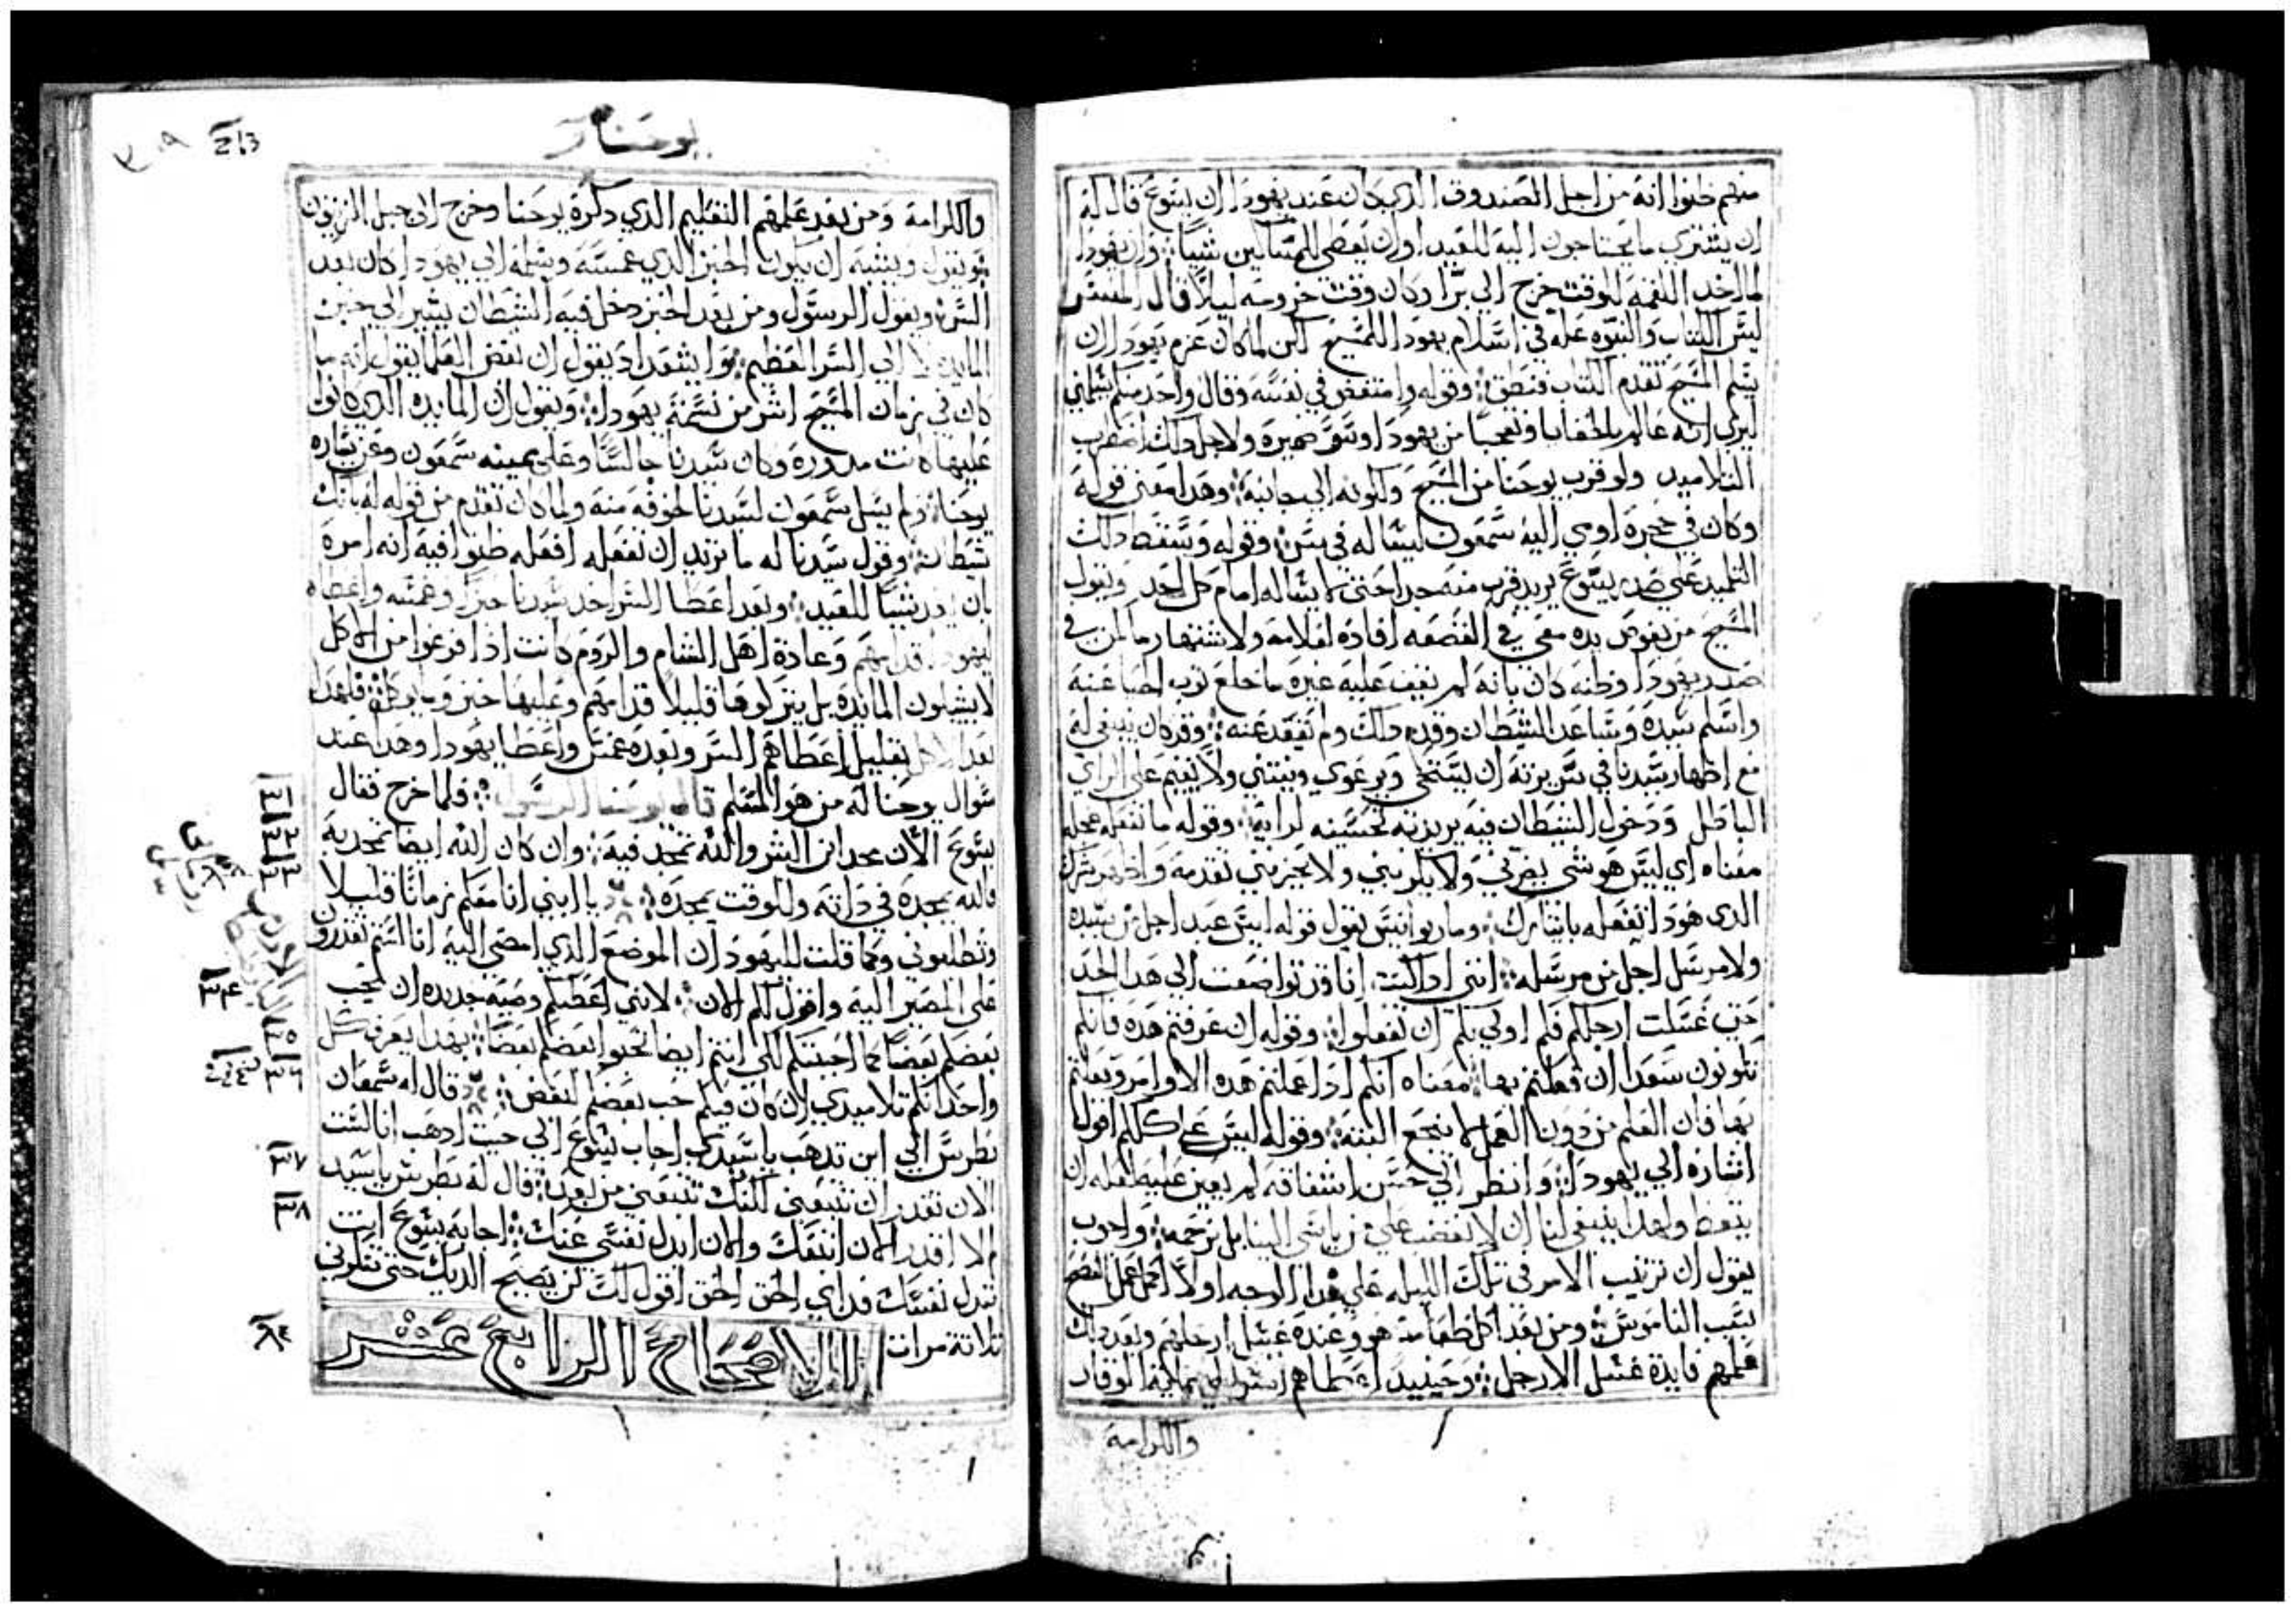 منهم ظنوا انه من اجل الصندوق الذي كان عند يهودا ان يسوع قال له
ان يشتري ما يحتاجون اليه للعيد او ان يعطي للمساكين شيئا وان يهودا
لما اخد اللقمه للوقت خرج الي برا وكان وقت خروجه ليلا قال المفسر
ليس الكتاب والنبوه عله في اسلام يهودا للمسيح لكن لما كان عزم يهودا ان
يسلم المسيح تقدم الكتاب فنطق وقوله وامتغض في نفسه وقال واحد منكم يسلمني
ليري انه عالم بالخفايا وتعجبا من يهودا وسو ضميره ولاجل دلك اضطرب
التلاميد ولو قرب يوحنا من المسيح ولكونه الي جانبه وهدا معني قوله
وكان في حجره اومي اليه سمعون ليساله في سر وقوله وسقط دلك
التلميد علي صدر يسوع يريد قرب منه جدا حتي لا يساله امام كل احد ويقول
المسيح من يغوص يده معي في القصعه افاده اعلامه ولا اشتهار ما كمن في
صدر يهودا وظنه كان بانه لم يقف عليه غيره ما خلع ثوب الخبا عنه
واسلم سيده وساعد الشيطان وقوه دلك ولم تفقد عنه وقد كان ينبغي له
مع اظهار سيدنا في سريرته ان يستحي ويرعوي وينتني ولا يقيم علي الراي
الباطل ودخول الشيطان فيه يريد به تحسينه لرايه وقوله ما تفعله عجله
معناه اي ليس هو شي يضرني ولا يكربني ولا يحزنني تقدمه واظهر شرك
الدي هودا تفعله باتيارك وماريوانيس يقول قوله ليس عبد اجل من سيده
ولا مرسل اجل من مرسله انني ادا كنت انا قد تواضعت الي هدا الحد
حتي غسلت ارجلكم فكم اولي بكم ان تفعلوا وقوله ان عرفتم هده فانكم
تكونون سعدا ان فعلتم بها معناه انكم ادا علمتم هده الاوامر وفعلتم
بها فان العلم من دون العمل لا ينجع البته وقوله ليس علي كلكم اقول
اشاره الي يهودا وانظر الي حسن اشفاقه لم يعين عليه لعله ان
يتعظ ولهدا ينبغي لنا ان لا نغضب علي من ياسي الينا بل نرحمه وادوب
يقول ان ترتيب الامر في تلك الليله علي هدا الوجه اولا اكمل عمل الفصح
بسبب الناموس ومن بعد اكل طعامه هو وعنده غسل ارجلهم وبعد دلك
علمهم فايدة غسل الارجل وحينيد اعطاهم السر الوقار
والكرامة
يوحنا
والكرامة ومن بعد علمهم التعليم الدي دكره يوحنا وخرج الي جبل الزيتون
ان يكون الخبز الدي غمسه وسلمه الي يهودا كان بعد
السر ويقول الرسول ومن بعد الخبز دخل فيه الشيطان يشير الي خبز
المايده لا الي السر العظيم وايشعداد يقول ان بعض العلما يقول انه ما
كان في زمان المسيح اشر من نسمة يهودا ويقول ان المايده الدي كانوا
عليها كانت مدوره وكان سيدنا جالسا وعلي يمينه سمعون وعن يساره
يوحنا ولم يسل سمعون لسيدنا لخوفه منه ولما كان تقدم من قوله له بانك
شيطان وقول سيدنا له ما تريد ان تفعله افعله ظنوا فيه انه امره
بان شيا للعيد وبعد اعطا السر اخد سيدنا خبزا وغمسه واعطاه
ليهودا قدامهم وعادة اهل الشام والروم كانت ادا فرغوا من الاكل
لا يشيلون المايده بل يتركوها قليلا قدامهم وعليها خبز وما يوكل فلهدا
بعد الاكل بقليل اعطاهم السر وبعده غمس واعطا يهودا وهدا عند
سوال يوحنا له من هو المسلم قال يوحنا الرسول فلما خرج فقال
يسوع الان مجد ابن البشر والله تمجد فيه وان كان الله ايضا تمجد به
فالله يمجده في داته وللوقت يمجده يا ابني انا معكم زمانا قليلا
وتطلبوني وكما قلت لليهود ان الموضع الدي امضي اليه انا انتم تقدرون
علي المصير اليه واقول لكم الان لانني اعطيكم وصيه جديده ان يحب
بعضكم بعضا كما احببتكم لكي انتم ايضا تحبوا بعضكم بعضا بهدا يعرف كل
واحد انكم تلاميدي ان كان فيكم حب بعضكم لبعض قال له سمعان
بطرس الي اين تدهب يا سيدي اجاب يسوع الي حيث ادهب انا لست
الان تقدر ان تتبعني لكنك تتبعني من بعد قال له بطرس يا سيد
لا اقدر الان اتبعك والان ابدل نفسي عنك اجابه يسوع انت
تبدل نفسك فداي الحق الحق اقول لك لن يصيح الديك حتي تنكرني
ثلاثة مرات الاصحاح الرابع عشر
٣٤
٣٧
٣٨